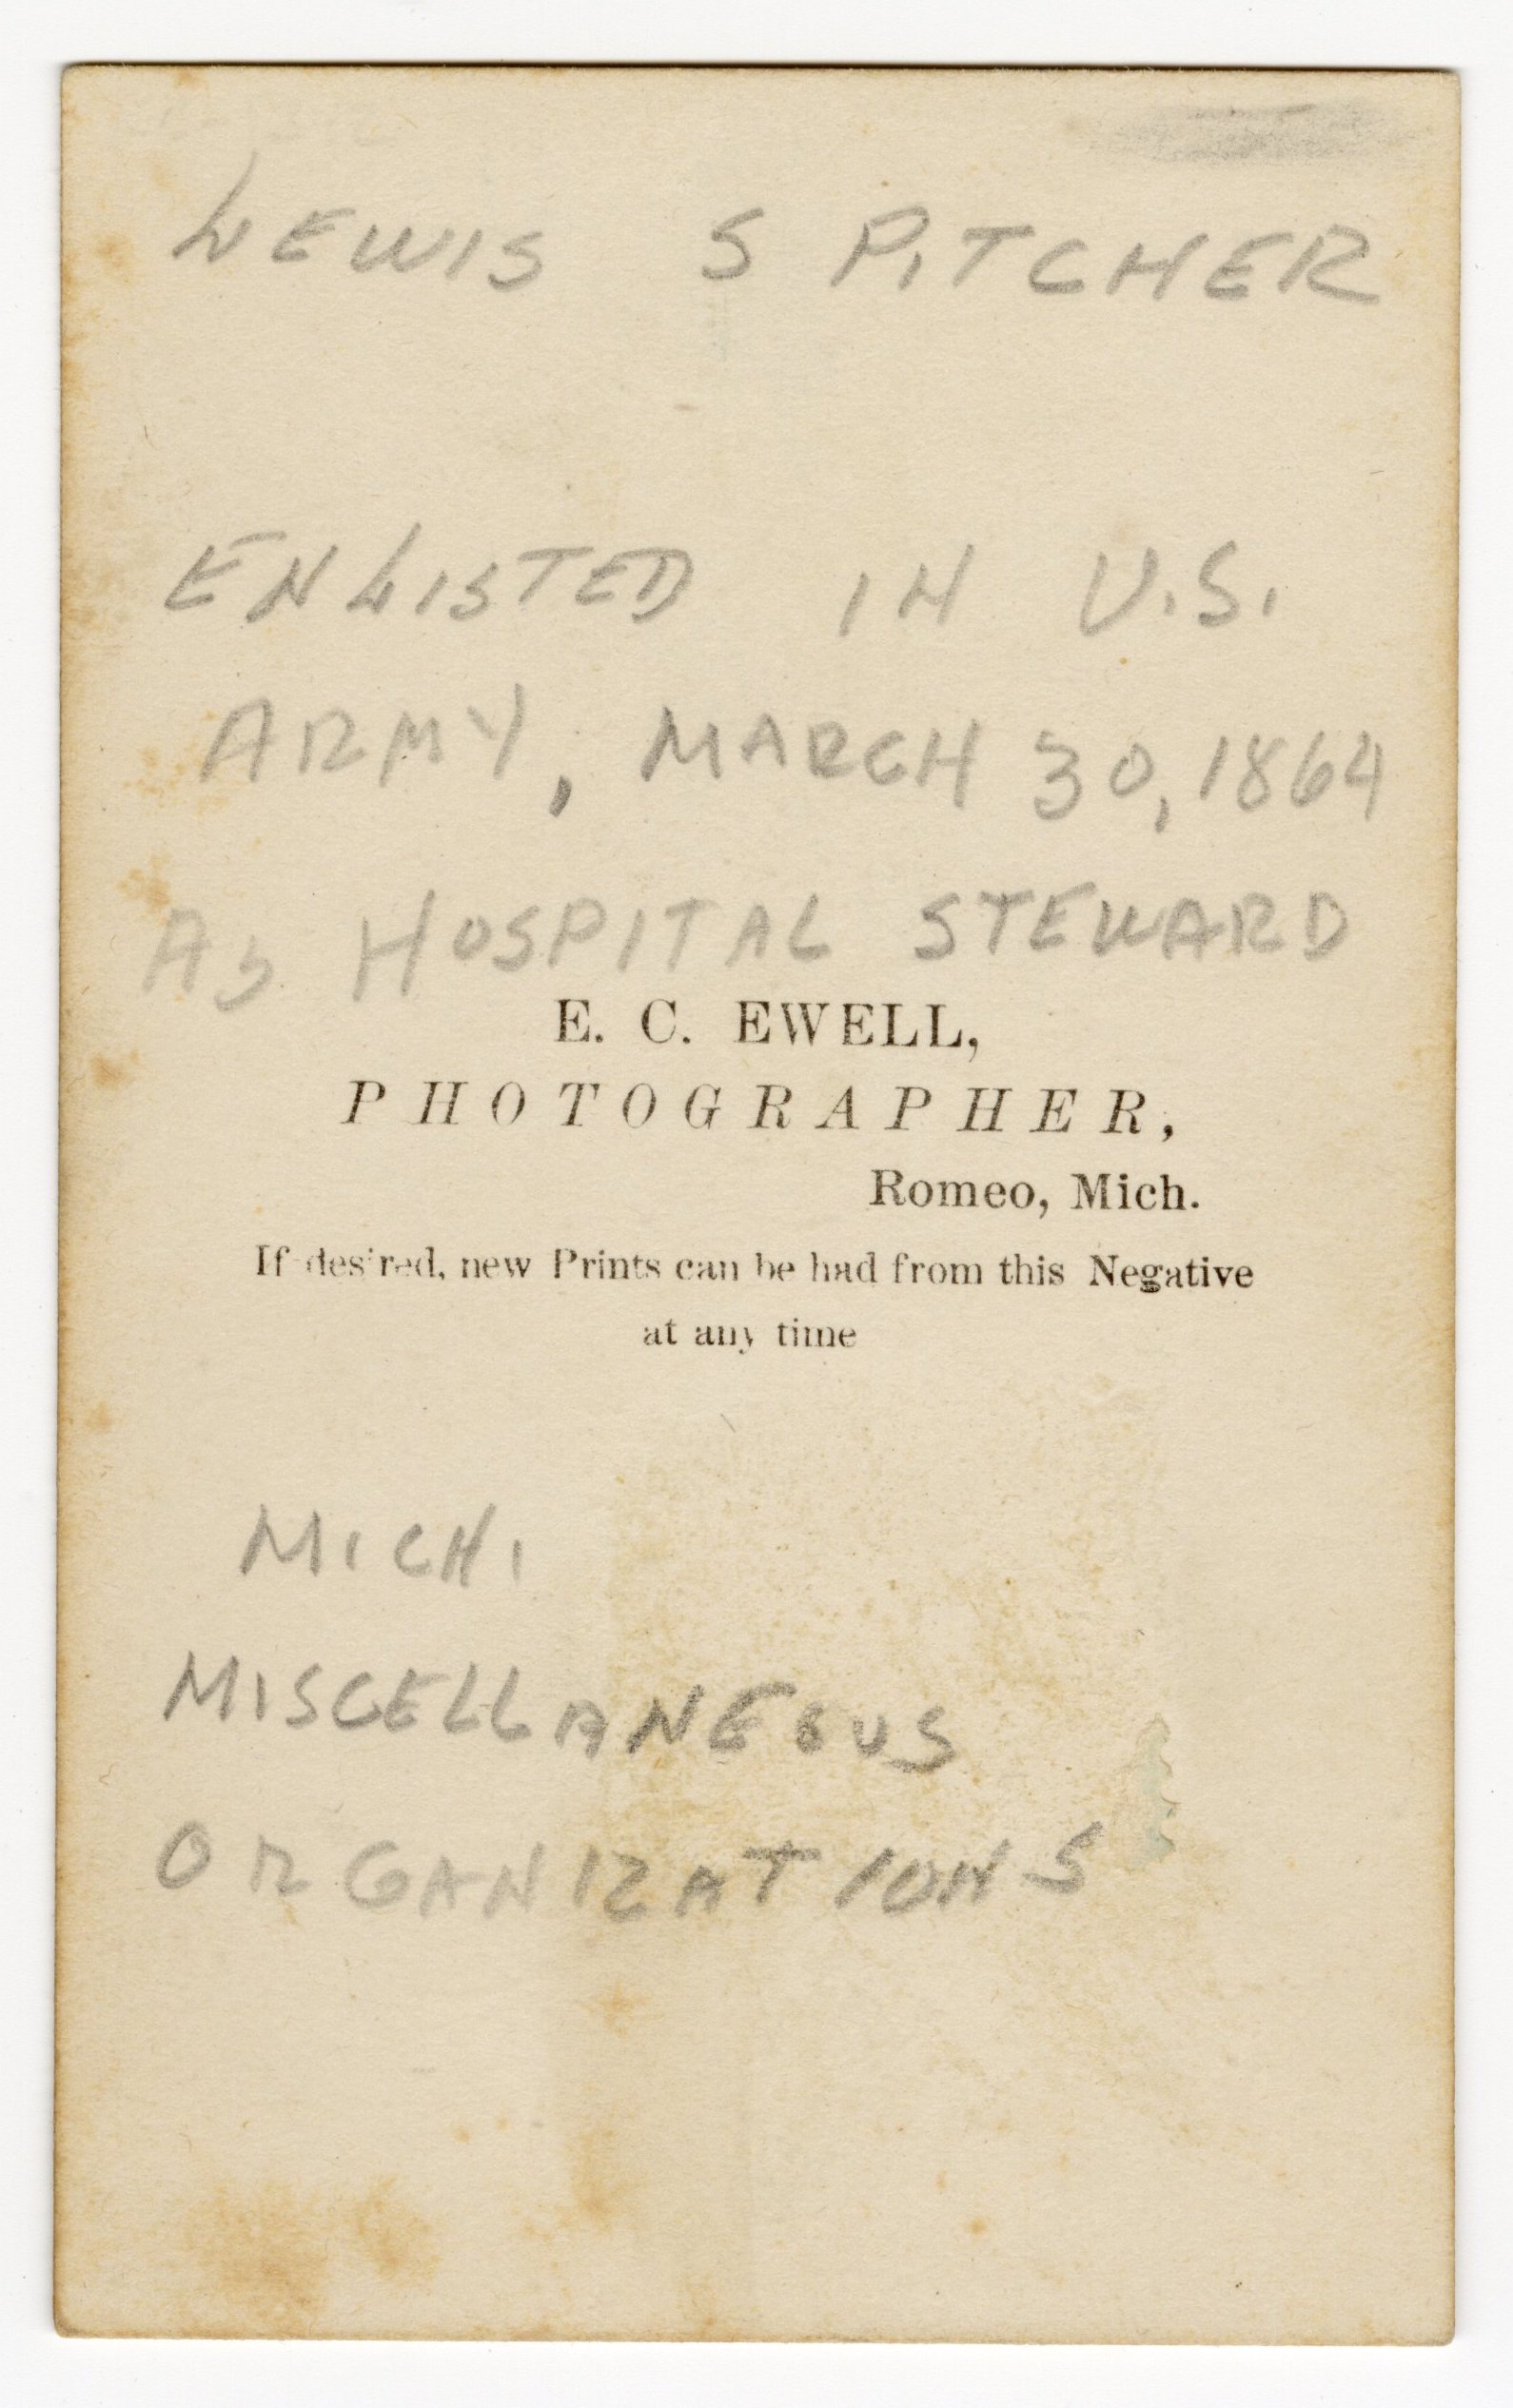 LEWIS S PITCHER
ENLISTED IN U.S.
ARMY, MARCH 30, 1864
AS HOSPITAL STEWARD
E. C. EWELL,
PHOTOGRAPHER,
Romeo, Mich.
If desired, new Prints can be had from this Negative
at any time
MICH.
MISCELLANEOUS
ORGANIZATIONS